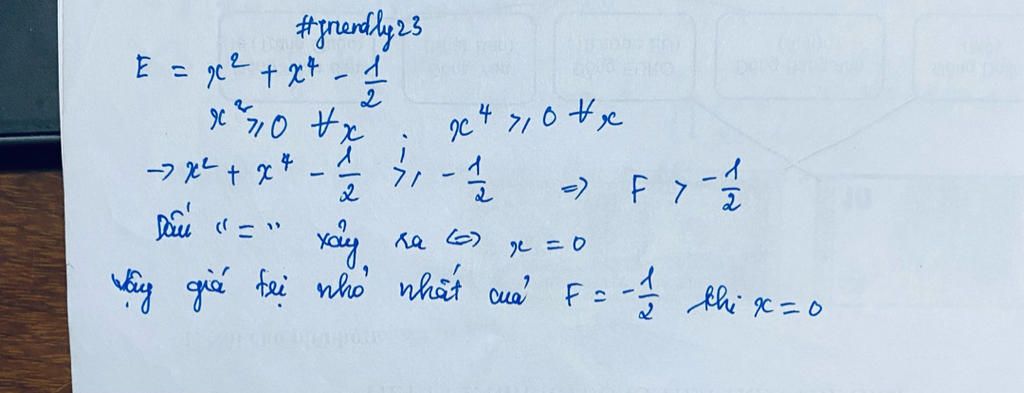 #friendly23
E = x² + x⁴ - 1/2
x² ≥ 0 ∀x ; x⁴ ≥ 0 ∀x
→ x² + x⁴ - 1/2 ≥ - 1/2 ⇒ F > - 1/2
Dấu "=" xảy ra ⇔ x = 0
Vậy giá trị nhỏ nhất của F = - 1/2 khi x = 0